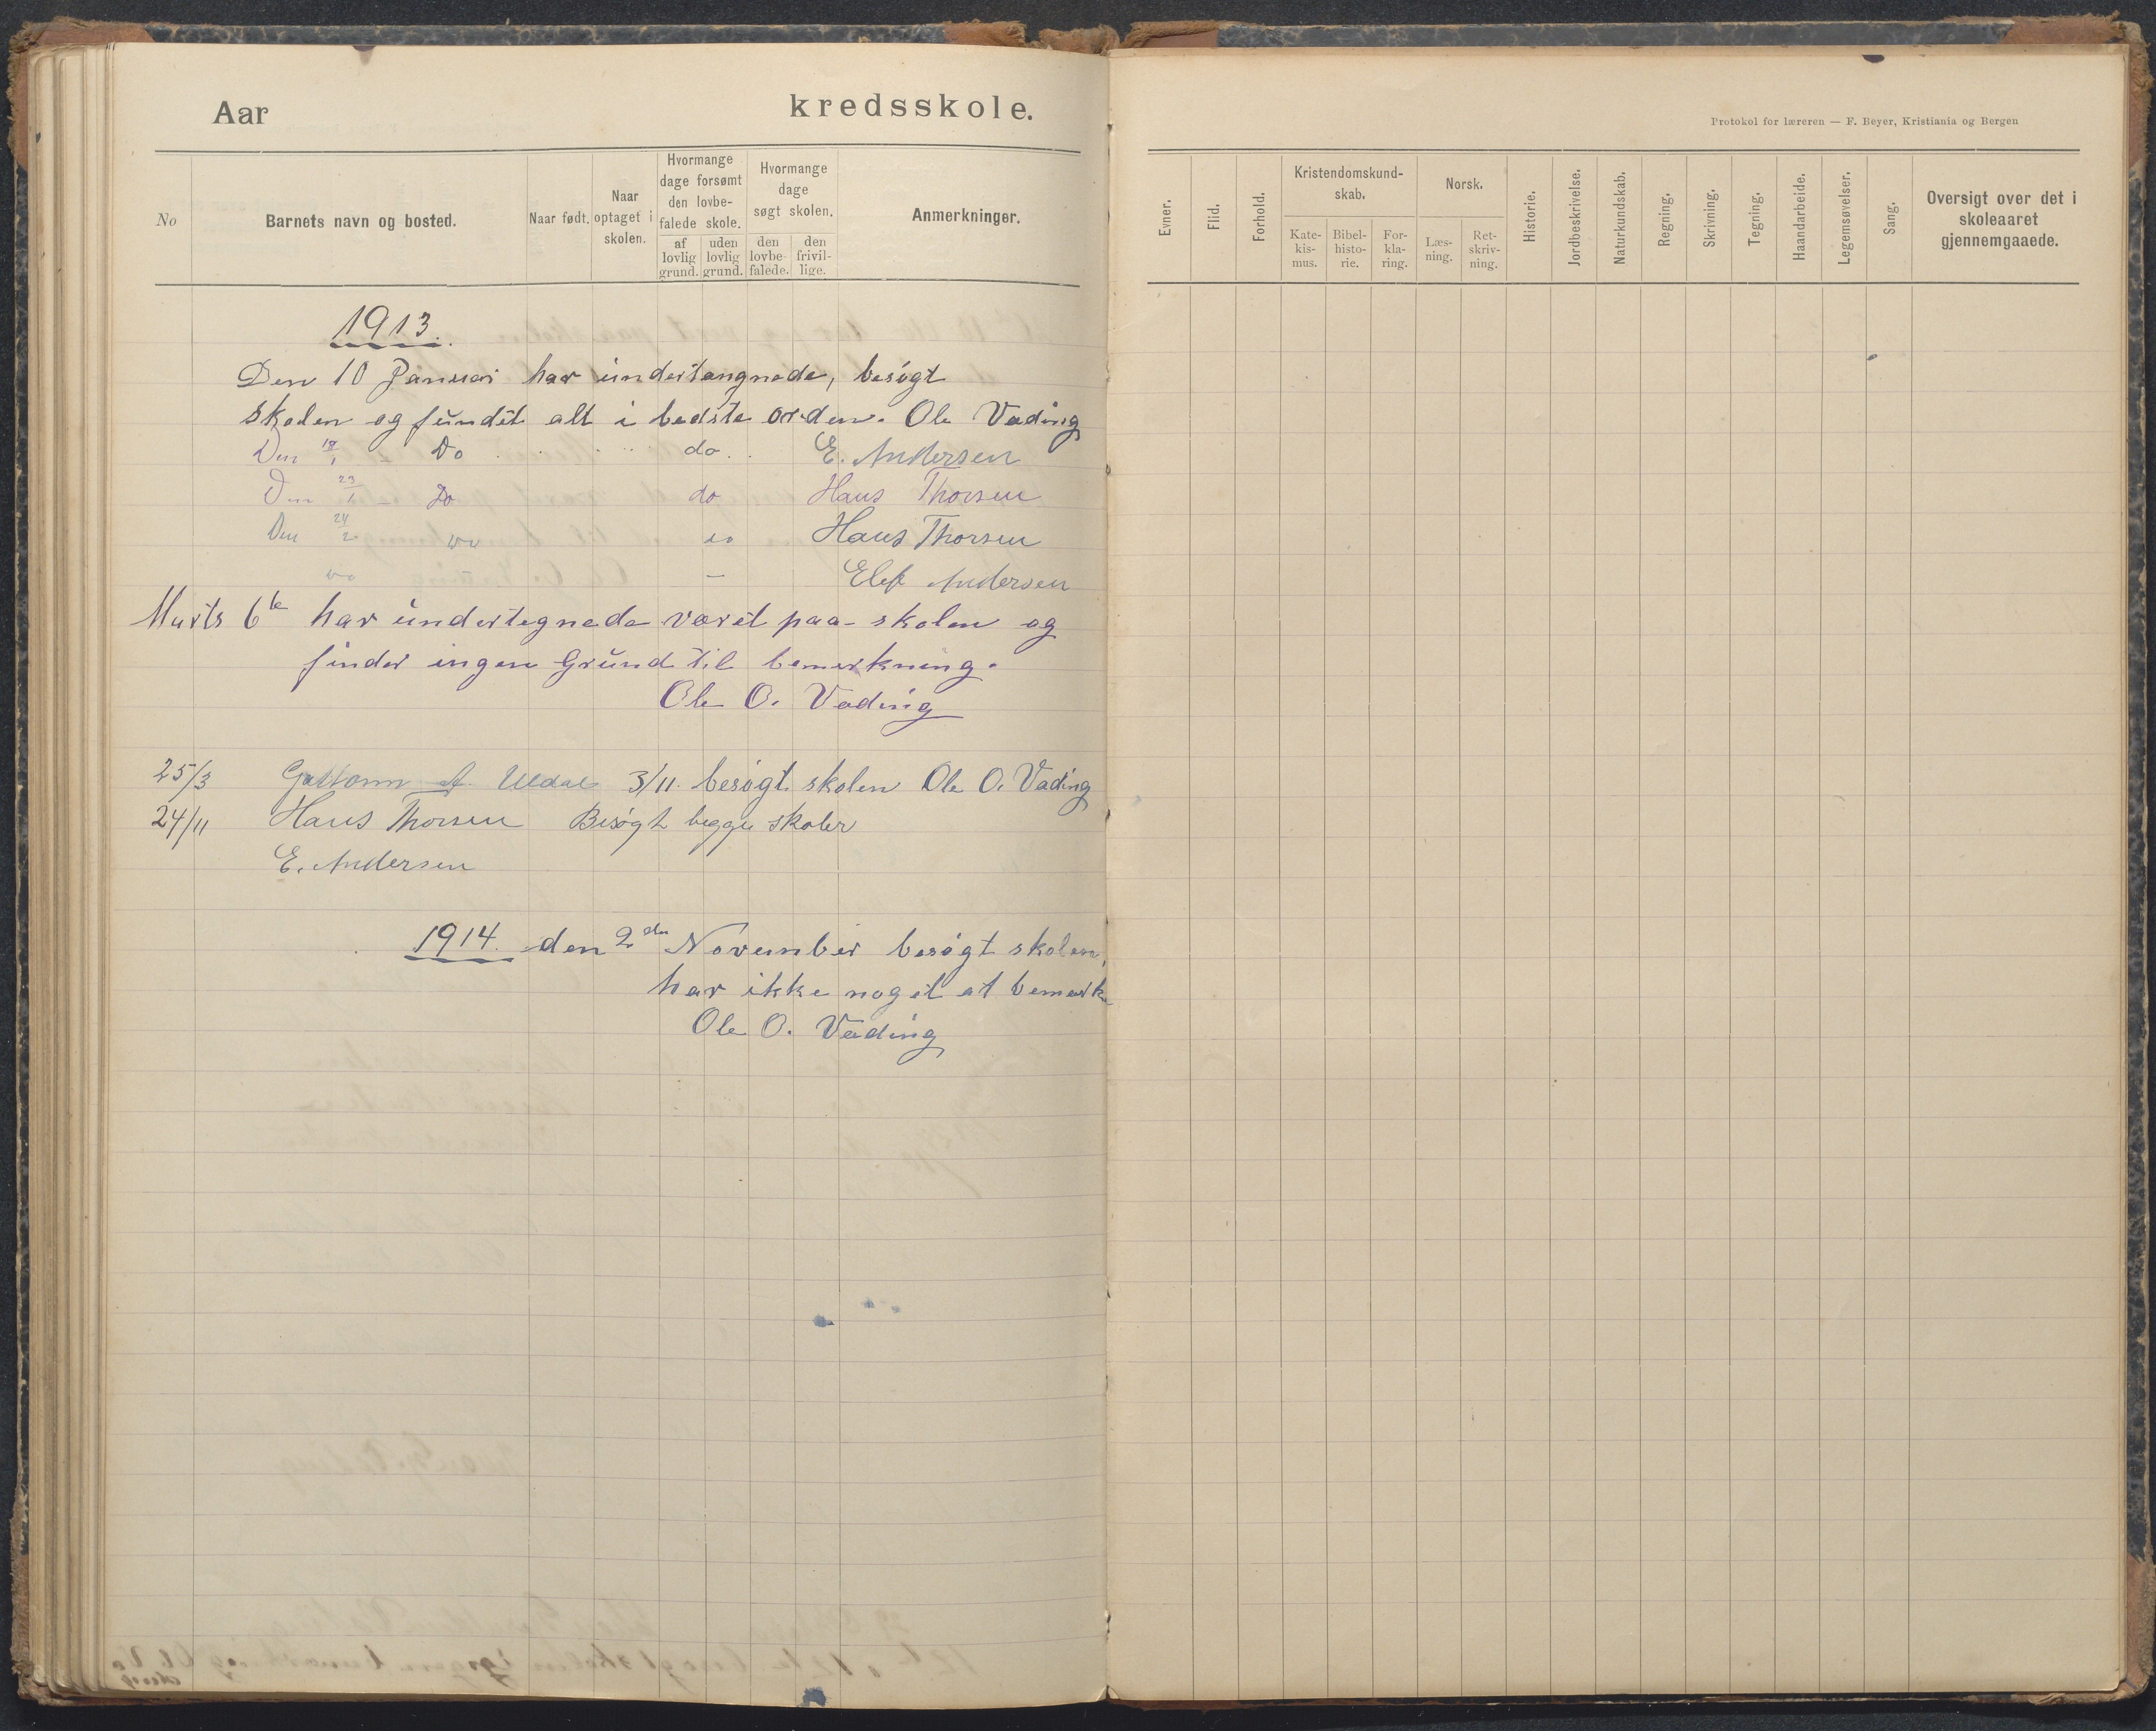 Aar kredsskole.
No
Barnets navn og bosted.
Naar født.
Naar
optaget i
skolen.
Hvormange
dage forsømt
den lovbe-
falede skole.
af
lovlig
grund.
uden
lovlig
grund.
Hvormange
dage
søgt skolen.
den
lovbe-
falede.
den
frivil-
lige.
Anmerkninger.
1913.
Den 10 Januar har undertangnede, besøgt
skolen og fundet alt i bedste orden. Ole Vading
Den Do do. E. Andersen
Den 23/1 - Do do Hans Thorsen
Den 24/2 Do do Hans Thorsen
do - Elef Andersen
Marts 6te har undertegnede været paa skolen og
finder ingen Grund til bemerkning.
Ole O. Vading
25/3 A. Uldal 3/11. besøgt skolen Ole O. Vading
24/11 Hans Thorsen Besøgt begge skoler
E. Andersen
1914. den 2den November besøgt skolen,
har ikke noget at bemerke
Ole O. Vading
Protokol for læreren — F. Beyer, Kristiania og Bergen
Evner.
Flid.
Forhold.
Kristendomskund-
skab.
Kate-
kis-
mus.
Bibel-
histo-
rie.
For-
kla-
ring.
Norsk.
Læs-
ning.
Ret-
skriv-
ning.
Historie.
Jordbeskrivelse.
Naturkundskab.
Regning.
Skrivning.
Tegning.
Haandarbeide.
Legemsøvelser.
Sang.
Oversigt over det i
skoleaaret
gjennemgaaede.